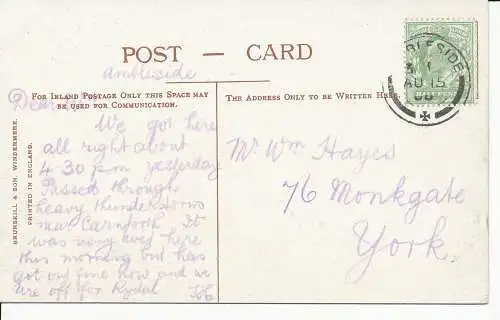 POST - CARD
Ambleside
FOR INLAND POSTAGE ONLY THIS SPACE MAY
BE USED FOR COMMUNICATION.
THE ADDRESS ONLY TO BE WRITTEN HERE.
Dear
We got here
all right about
4-30 p.m yesterday
Passed through
heavy thunderstorms
near Carnforth It
was very wet here
this morning but has
got out fine now and we
are off for Rydal
Mr Wm Hayes
76 Monkgate
York.
BLESIDE
AU 15
BRUNSKILL & SON, WINDERMERE.
PRINTED IN ENGLAND.